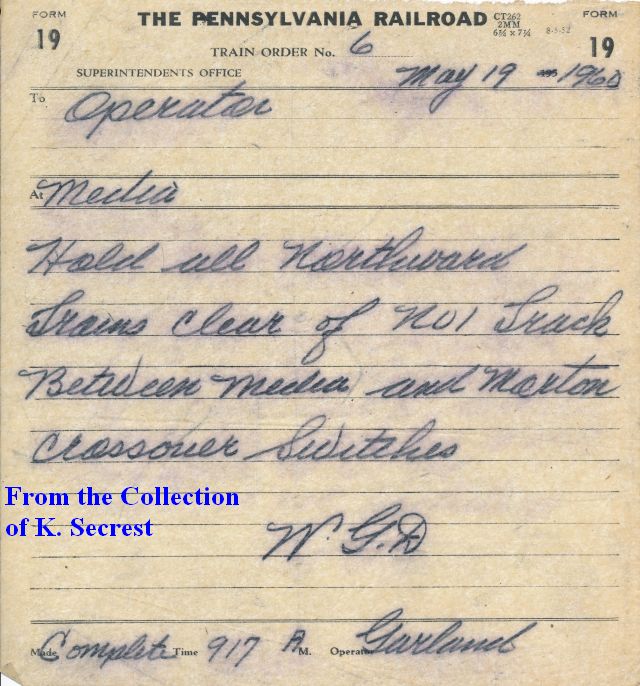 FORM 19
THE PENNSYLVANIA RAILROAD
CT262
2MM
6¾ x 7¼
8-5-52
FORM 19
TRAIN ORDER No. 6
SUPERINTENDENTS OFFICE
May 19 195 1960
To Operator
At Media
Hold all Northward
Trains clear of No1 Track
Between Media and Morton
Crossover Switches
From the Collection
of K. Secrest
W.G.D
Made Complete Time 917 A M. Operator Garland